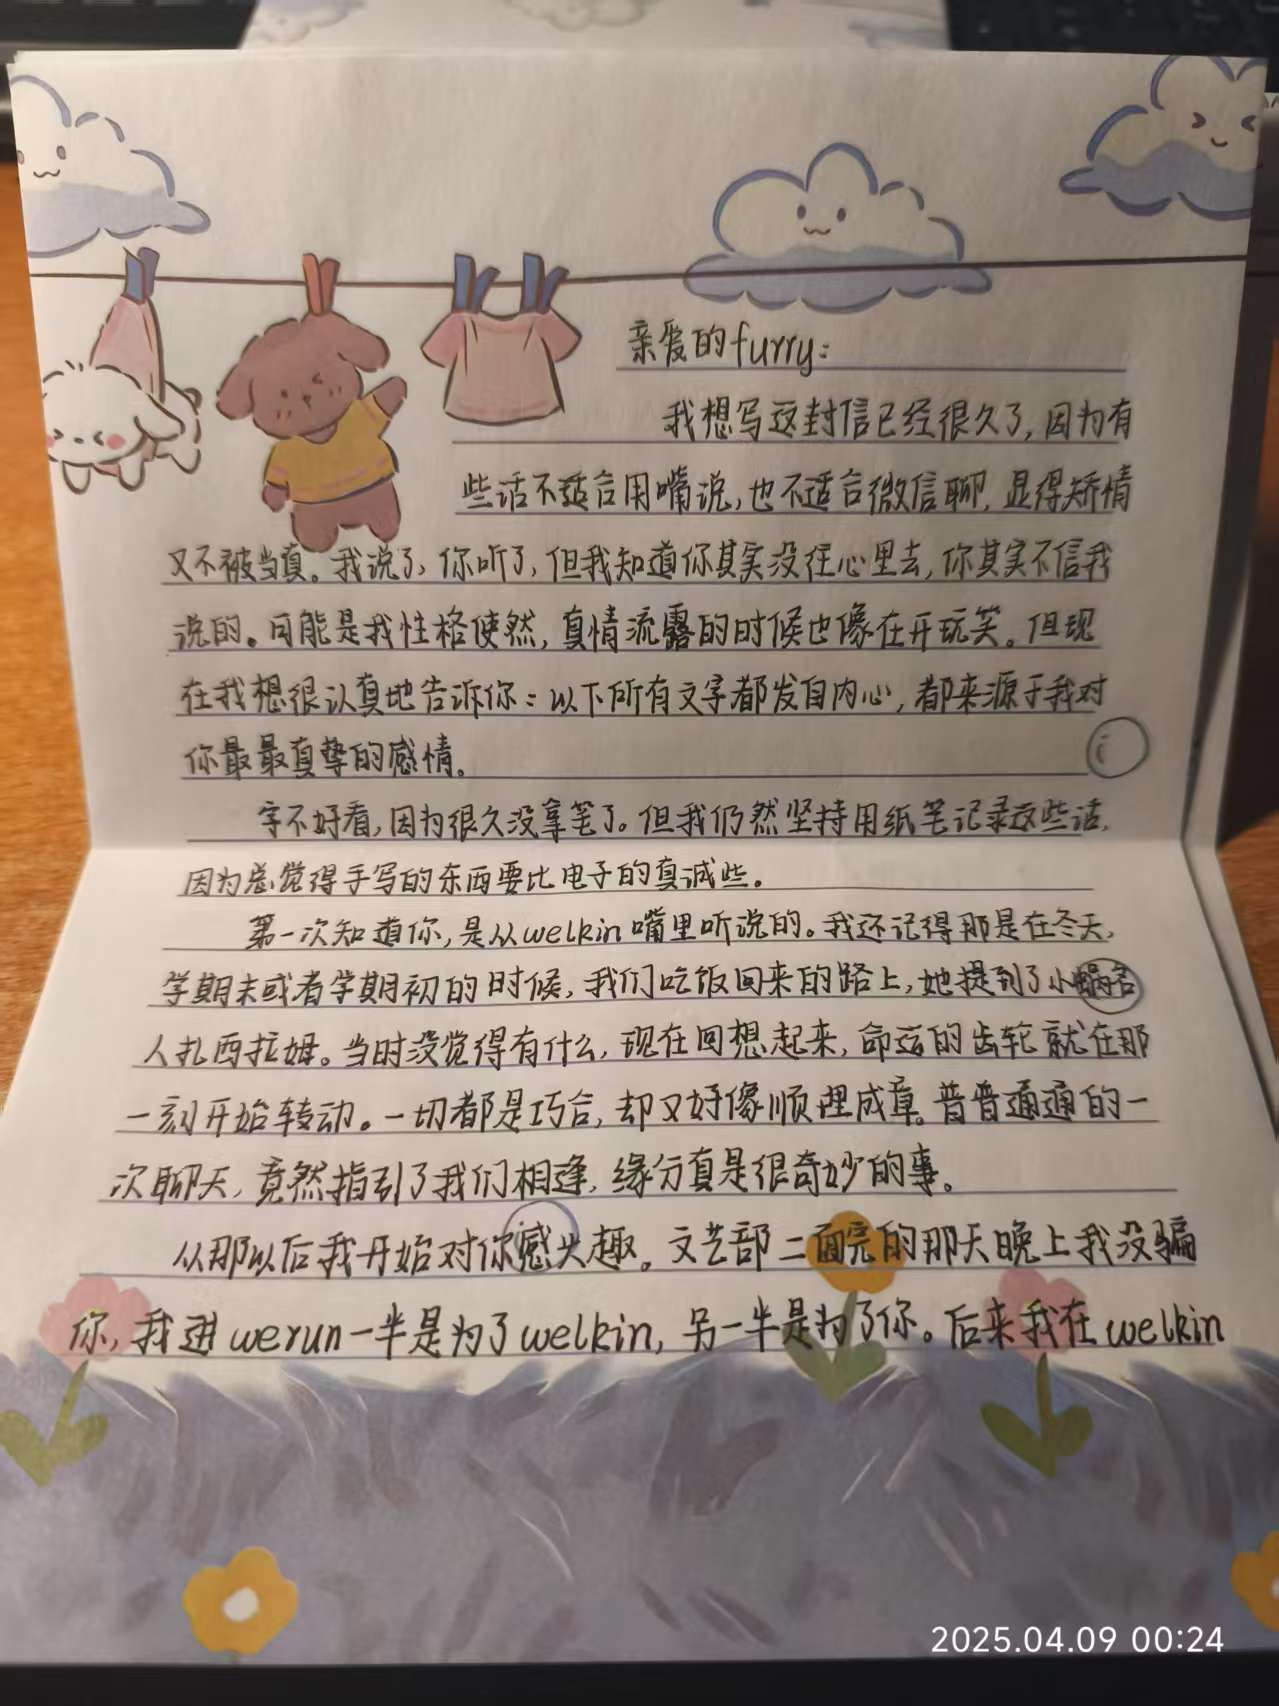 亲爱的furry：
我想写这封信已经很久了，因为有
些话不适合用嘴说，也不适合微信聊，显得矫情
又不被当真。我说了，你听了，但我知道你其实没往心里去，你其实不信我
说的。可能是我性格使然，真情流露的时候也像在开玩笑。但现
在我想很认真地告诉你：以下所有文字都发自内心，都来源于我对
你最最真挚的感情。
字不好看，因为很久没拿笔了。但我仍然坚持用纸笔记录这些话，
因为总觉得手写的东西要比电子的真诚些。
第一次知道你，是从welkin嘴里听说的。我还记得那是在冬天，
学期末或者学期初的时候，我们吃饭回来的路上，她提到了小
人扎西拉姆。当时没觉得有什么，现在回想起来，命运的齿轮就在那
一刻开始转动。一切都是巧合，却又好像顺理成章。普普通通的一
次聊天，竟然指引了我们相逢，缘分真是很奇妙的事。
从那以后我开始对你感兴趣。文艺部二面完的那天晚上我没骗
你，我进werun一半是为了welkin，另一半是为了你。后来我在welkin
2025.04.09 00:24